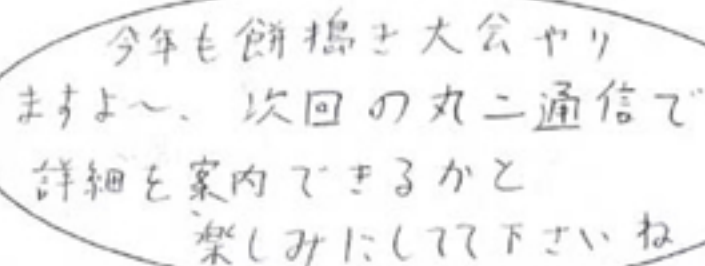 今年も餅搗き大会やり
ますよ～、次回の丸二通信で
詳細を案内できるかと
楽しみにしてて下さいね